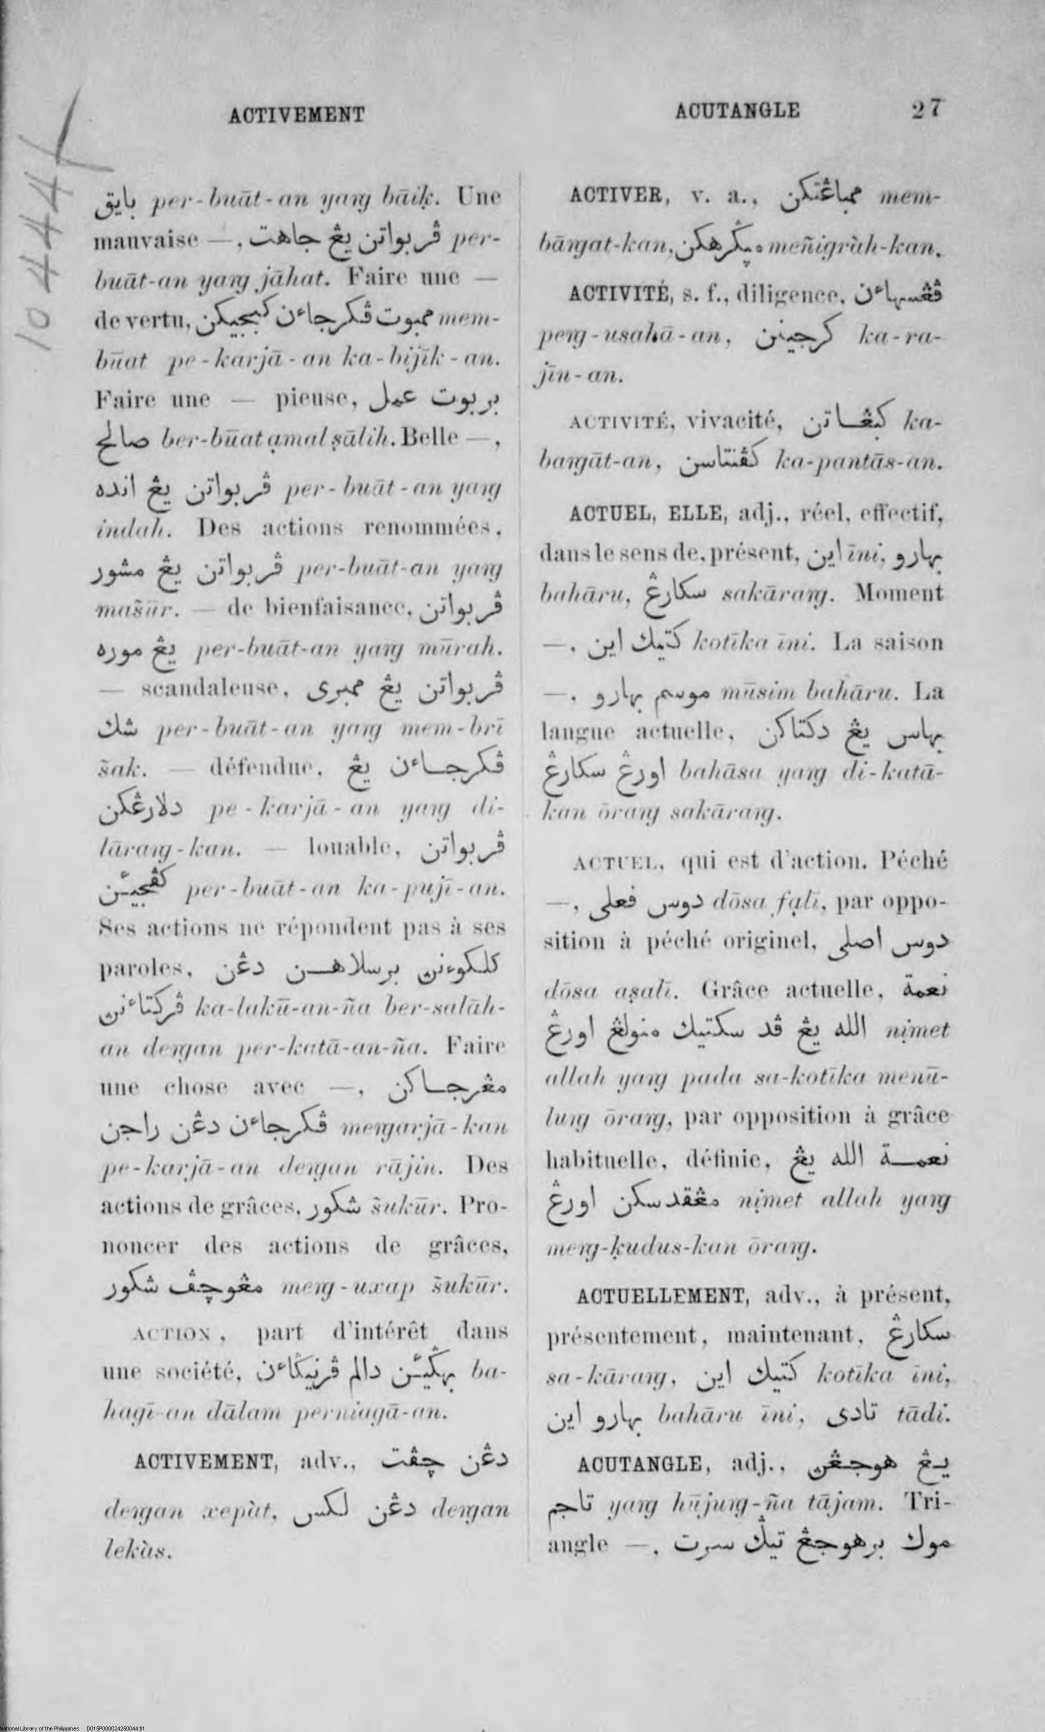 ACTIVEMENT
ACUTANGLE 27
10444
بايق per-buāt-an yaṅg bāiḳ. Une
mauvaise —, ڤربواتن يڠ جاهت per-
buāt-an yaṅg jāhat. Faire une —
de vertu, ممبوت ڤكرجاءن كبجيكن mem-
būat pe-karjā-an ka-bijīk-an.
Faire une — pieuse, بربوت عمل
صالح ber-būat ạmal ṣālih. Belle —,
ڤربواتن يڠ انده per-buāt-an yaṅg
indah. Des actions renommées,
ڤربواتن يڠ مشور per-buāt-an yaṅg
mas̃ūr. — de bienfaisance, ڤربواتن
يڠ موره per-buāt-an yaṅg mūrah.
— scandaleuse, ڤربواتن يڠ ممبرى
شك per-buāt-an yaṅg mem-brī
s̃ak. — défendue, ڤكرجاءن يڠ
دلارڠكن pe-karjā-an yaṅg di-
lāraṅg-kan. — louable, ڤربواتن
كڤجيئن per-buāt-an ka-pujī-an.
Ses actions ne répondent pas à ses
paroles, كلكوءنڽ برسلاهن دڠن
ڤركتاءنڽ ka-lakū-an-ña ber-salāh-
an deṅgan per-katā-an-ña. Faire
une chose avec —, مڠرجاكن
ڤكرجاءن دڠن راجن meṅgarjā-kan
pe-karjā-an deṅgan rājin. Des
actions de grâces, شكور s̃ukūr. Pro-
noncer des actions de grâces,
مڠوچڤ شكور meṅg-uxap s̃ukūr.
ACTION, part d'intérêt dans
une société, بهڬيئن دالم ڤرنيڬاءن ba-
hagī-an dālam perniagā-an.
ACTIVEMENT, adv., دڠن چڤت
deṅgan xepàt, دڠن لكس deṅgan
lekàs.
ACTIVER, v. a., ممباڠتكن mem-
bāṅgat-kan, مڽڬرهكن meñigràh-kan.
ACTIVITÉ, s. f., diligence, ڤڠسهاءن
peṅg-usahā-an, كرجينن ka-ra-
jīn-an.
ACTIVITÉ, vivacité, كبڠاتن ka-
baṅgāt-an, كڤنتاسن ka-pantās-an.
ACTUEL, ELLE, adj., réel, effectif,
dans le sens de, présent, اين īni, بهارو
bahāru, سكارڠ sakāraṅg. Moment
—, كتيك اين kotīka īni. La saison
—, موسم بهارو mūsim bahāru. La
langue actuelle, بهاس يڠ دكتاكن
اورڠ سكارڠ bahāsa yaṅg di-katā-
kan ōraṅg sakāraṅg.
ACTUEL, qui est d'action. Péché
—, دوس فعلى dōsa fạlī, par oppo-
sition à péché originel, دوس اصلى
dōsa aṣalī. Grâce actuelle, نعمة
الله يڠ ڤد سكتيك منولڠ اورڠ nịmet
allah yaṅg pada sa-kotīka menū-
luṅg ōraṅg, par opposition à grâce
habituelle, définie, نعمة الله يڠ
مڠقدسكن اورڠ nịmet allah yaṅg
meṅg-ḳudus-kan ōraṅg.
ACTUELLEMENT, adv., à présent,
présentement, maintenant, سكارڠ
sa-kāraṅg, كتيك اين kotīka īni,
بهارو اين bahāru īni, تادى tādi.
ACUTANGLE, adj., يڠ هوجڠڽ
تاجم yaṅg hūjuṅg-ña tājam. Tri-
angle —, موك برهوجڠ تيڬ سرت
National Library of the Philippines